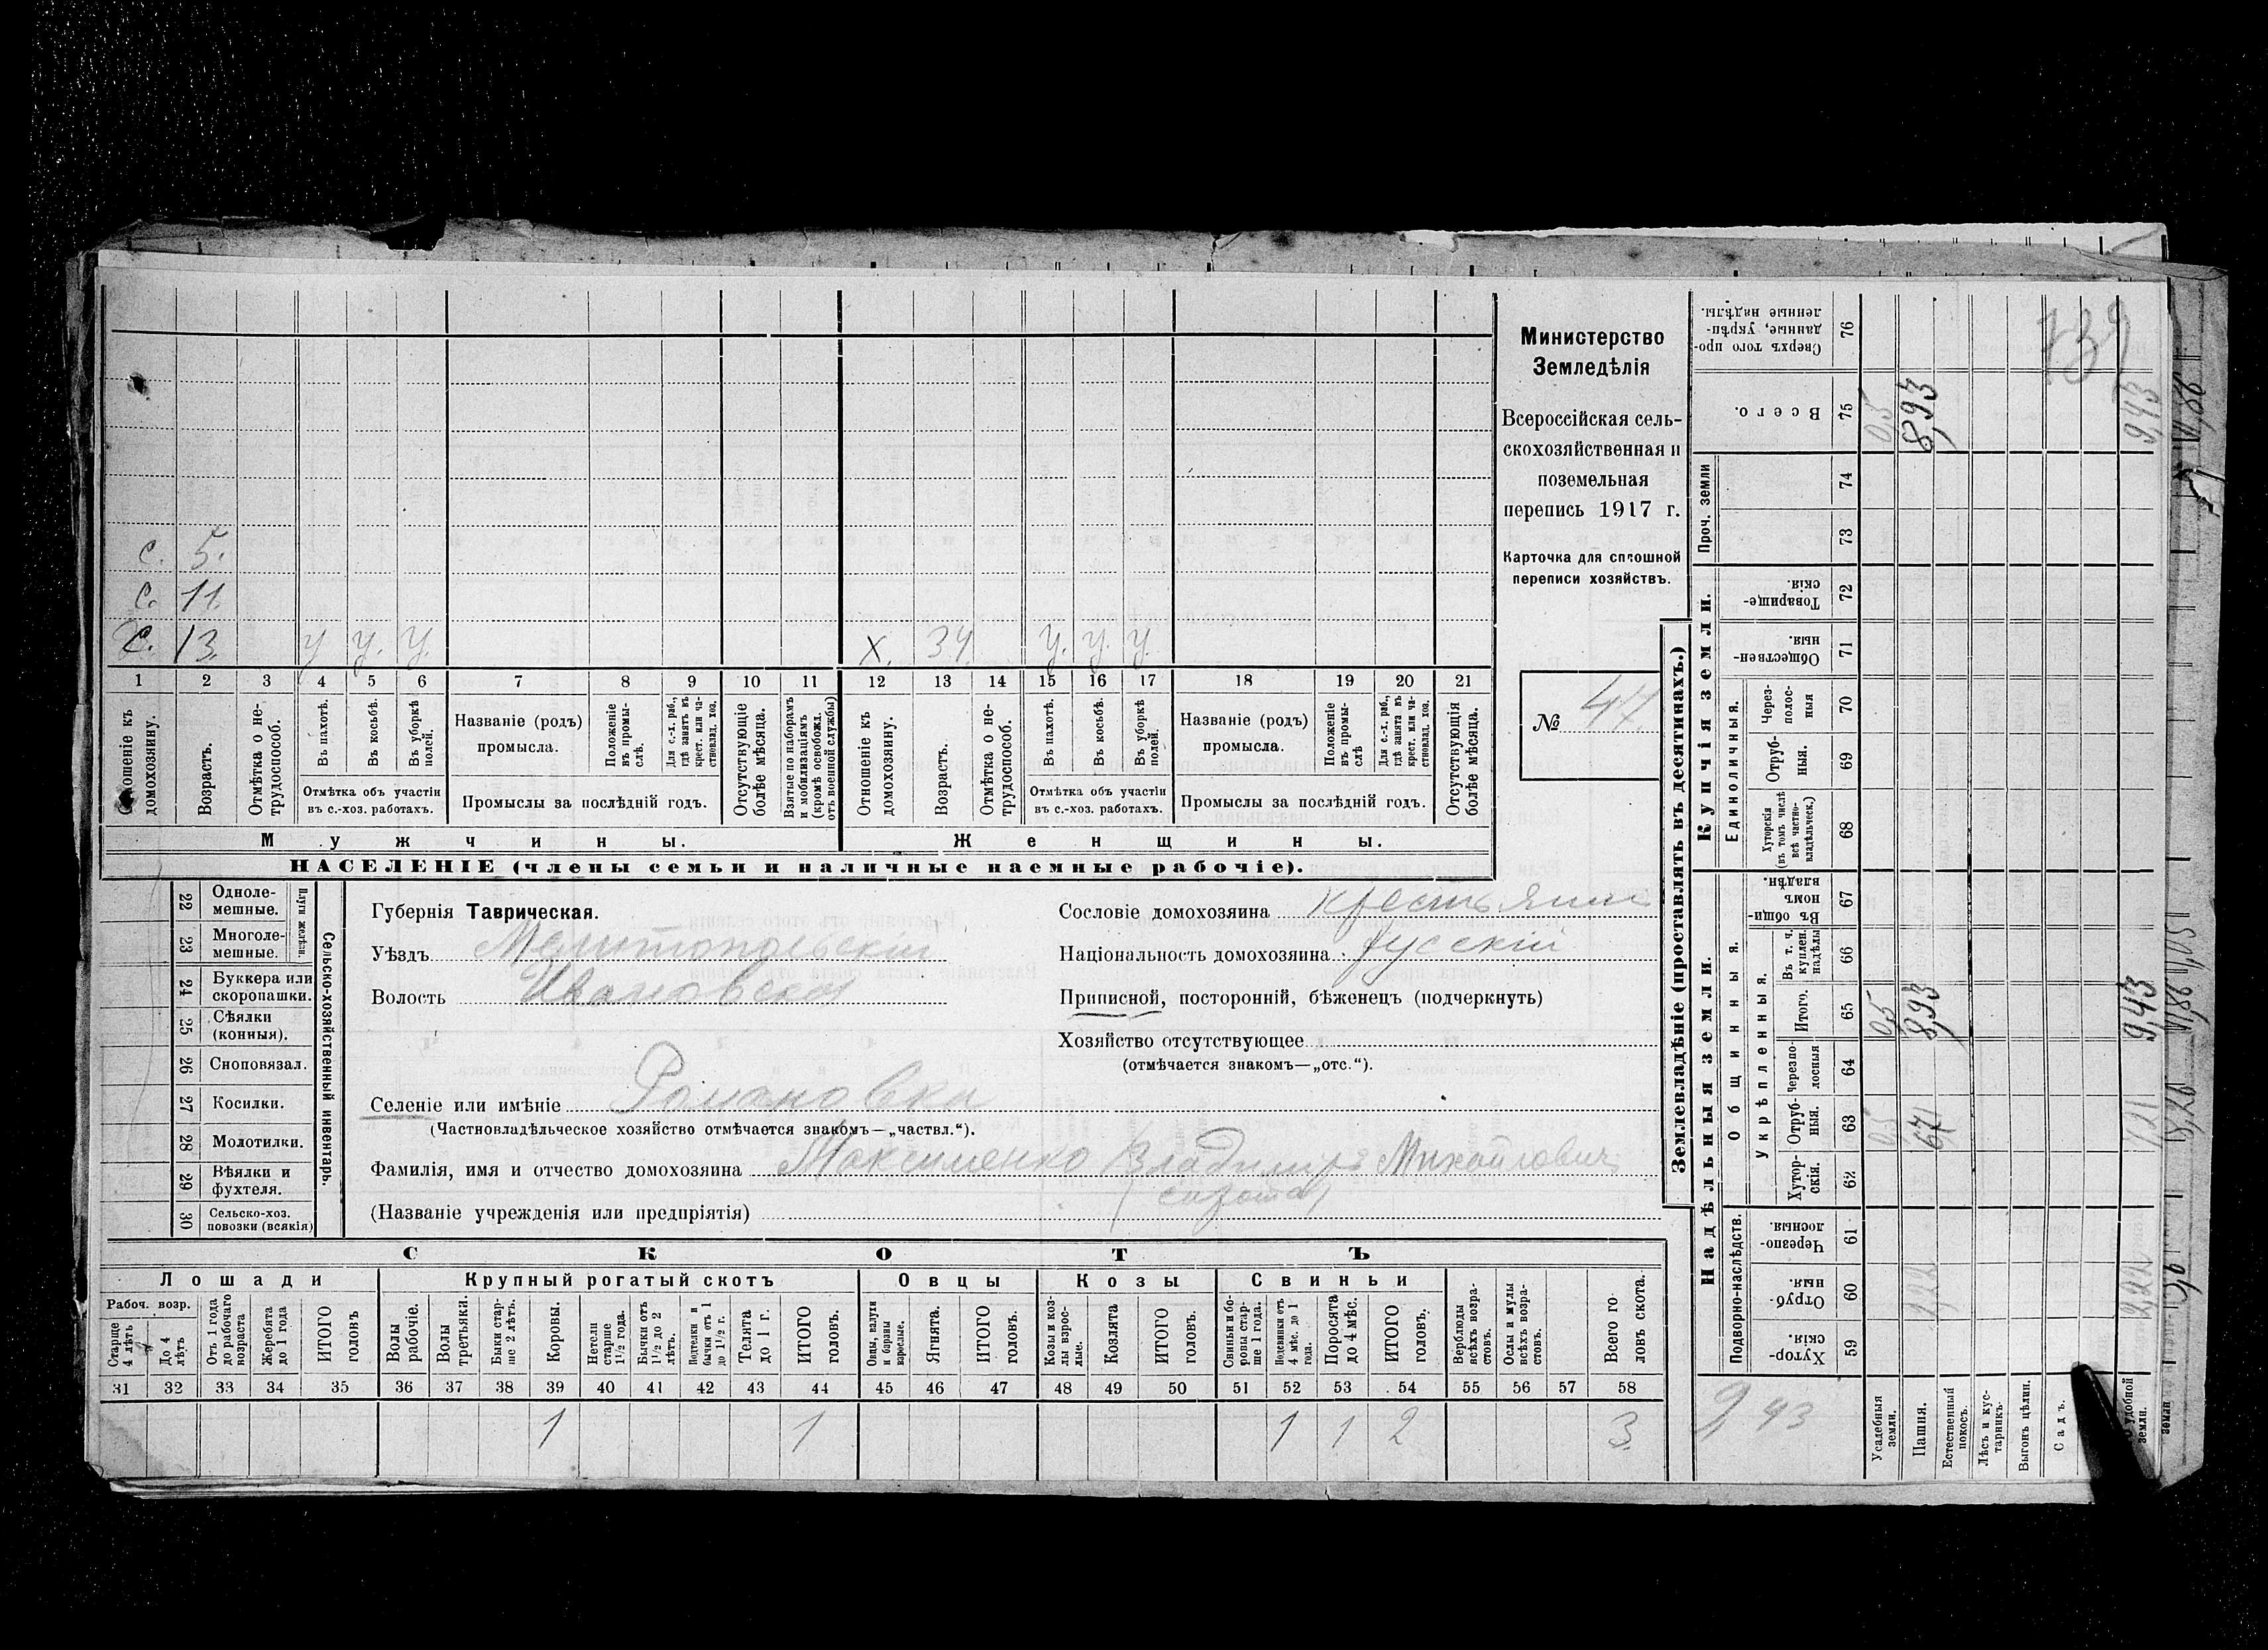 С. 5.
С. 11.
С. 13. У У. У. Х. 34. У. У. У.
1 2 3 4 5 6 7 8 9 10 11 12 13 14 15 16 17 18 19 20 21
Отношеніе къ домохозяину.
Возрастъ.
Отмѣтка о не-
трудоспособ.
Въ пахотѣ.
Въ косьбѣ.
Въ уборкѣ
полей.
Отмѣтка объ участіи
въ с.-хоз. работахъ.
Названіе (родъ)
промысла.
Положеніе
въ промы-
слѣ.
Для с.-х. раб.,
гдѣ занятъ въ
крест. или ча-
стновлад. хоз.
Промыслы за послѣдній годъ.
Отсутствующіе
болѣе мѣсяца.
Взятые по наборамъ
и мобилизаціямъ
(кромѣ освобожд.
отъ военной службы)
Отношеніе къ
домохозяину.
Возрастъ.
Отмѣтка о не-
трудоспособ.
Въ пахотѣ.
Въ косьбѣ.
Въ уборкѣ
полей.
Отмѣтка объ участіи
въ с.-хоз. работахъ.
Названіе (родъ)
промысла.
Положеніе
въ промы-
слѣ
Для с.-х. раб.,
гдѣ занята въ
крест. или ча-
стновлад. хоз.
Промыслы за послѣдній годъ.
Отсутствующія
болѣе мѣсяца.
Мужчины. Женщины.
НАСЕЛЕНІЕ (члены семьи и наличные наемные рабочіе).
Министерство
Земледѣлія
Всероссійская сель-
скохозяйственная и
поземельная
перепись 1917 г.
Карточка для сплошной
переписи хозяйствъ.
№ 47
22 Одноле-
мешные.
23 Многоле-
мешные.
Плуги желѣзн.
24 Буккера или
скоропашки.
25 Сѣялки
(конныя).
26 Сноповязал.
27 Косилки.
28 Молотилки.
29 Вѣялки и
фухтеля.
30 Сельско-хоз.
повозки (всякія)
Сельско-хозяйственный инвентарь.
Губернія Таврическая.
Уѣздъ Мелитопольскій
Волость Ивановская
Селеніе или имѣніе Романовка
(Частновладѣльческое хозяйство отмѣчается знакомъ—„частвл.“).
Фамилія, имя и отчество домохозяина Максименко (Владимиръ Михайлович
сирота)
(Названіе учрежденія или предпріятія)
Сословіе домохозяина крестьянин
Національность домохозяина русскій
Приписной, посторонній, бѣженецъ (подчеркнуть)
Хозяйство отсутствующее
(отмѣчается знакомъ—„отс.“).
СКОТЪ
Лошади Крупный рогатый скотъ Овцы Козы Свиньи
Рабоч. возр.
Старше
4 лѣтъ
До 4
лѣтъ
Отъ 1 года
до рабочаго
возраста
Жеребята
до 1 года
ИТОГО
головъ
Волы
рабочіе.
Волы
третьяки.
Быки стар-
ше 2 лѣтъ.
Коровы.
Нетели
старше
1 1/2 года.
Бычки отъ
1 1/2 до 2
лѣтъ.
Подтелки и
бычки отъ 1
до 1 1/2 г.
Телята
до 1 г.
ИТОГО
головъ.
Овцы, валухи
и бараны
взрослые.
Ягнята.
ИТОГО
головъ.
Козы и коз-
лы взрос-
лые.
Козлята
ИТОГО
головъ.
Свиньи и бо-
ровы стар-
ше 1 года.
Подсвинки отъ
4 мѣс. до 1
года.
Поросята
до 4 мѣс.
ИТОГО
головъ.
Верблюды
всѣхъ возра-
стовъ.
Ослы и мулы
всѣхъ возра-
стовъ.
Всего го-
ловъ скота.
31 32 33 34 35 36 37 38 39 40 41 42 43 44 45 46 47 48 49 50 51 52 53 54 55 56 57 58
1 1 1 1 2 3
Землевладѣніе (проставлять въ десятинахъ.)
Сверхъ того про-
данные, укрѣп-
ленные надѣлы.
76
Всего.
75 0,5 8,93 9,43
739
Проч. земли
74
73
Купчія земли.
Товарище-
скія.
72
Обществен-
ныя.
71
Единоличныя.
Через-
полос-
ныя
70
Отруб-
ныя.
69
Хуторскія
(въ томъ числѣ
всѣ частно-
владѣльческ.)
68
Надѣльныя земли.
Общинныя.
Въ общи-
номъ
владѣн.
67
Укрѣпленныя.
Въ т. ч.
куплен.
надѣлы
66
Итого.
65 0,5 8,93 9,43
Черезпо-
лосныя
64
Отруб-
ныя.
63 0,5 6,71 7,21
Хутор-
скія.
62
Подворно-наслѣдств.
Черезпо-
лосныя.
61
Отруб-
ныя.
60 2,22 2,22
Хутор-
скія.
59
9,43
Усадебныя
земли.
Пашня.
Естественный
покосъ.
Лѣсъ и кус-
тарникъ.
Выгонъ цѣлин.
Садъ.
удобной
земли.